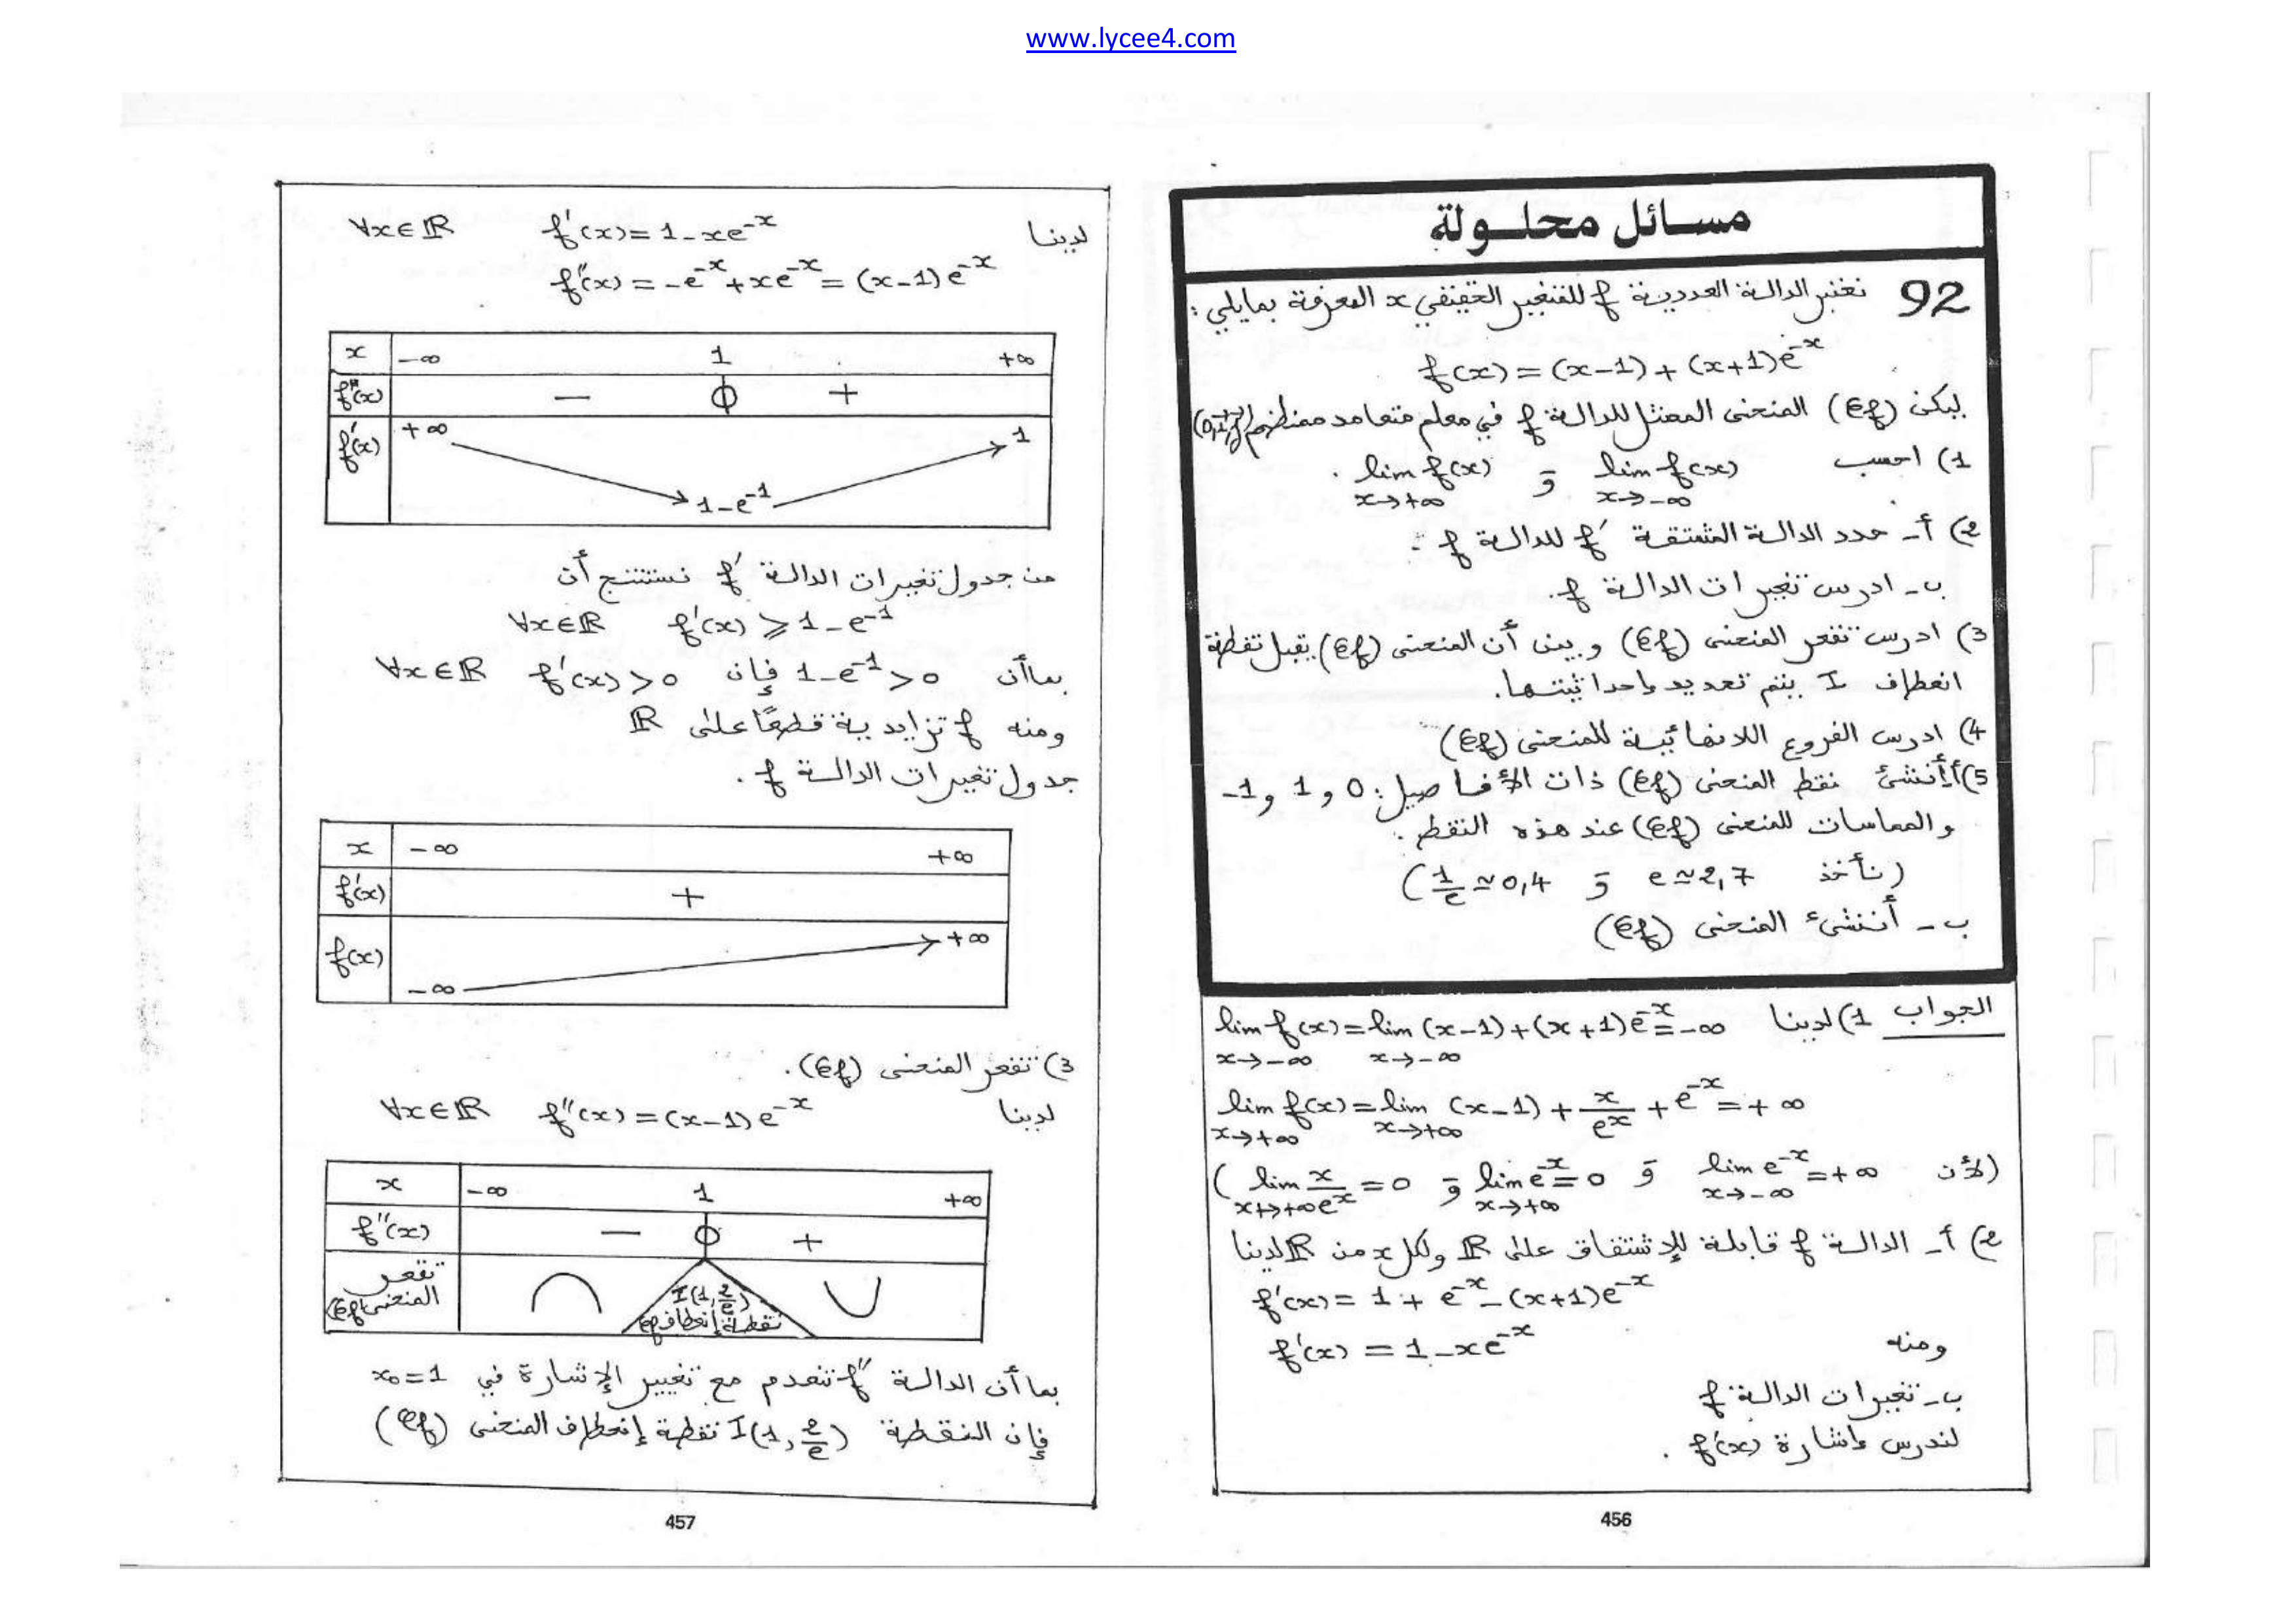 www.lycee4.com
مسائل محلولة
92 نعتبر الدالة العددية f للمتغير الحقيقي x المعرفة بمايلي :
f(x) = (x-1) + (x+1)e^{-x}
ليكن (Cf) المنحنى الممثل للدالة f في معلم متعامد ممنظم (0,i,j)
1) احسب lim f(x) x→-∞ و lim f(x) x→+∞ .
2) أ- حدد الدالة المشتقة f' للدالة f .
ب- ادرس تغيرات الدالة f.
3) ادرس تقعر المنحنى (Cf) وبين أن المنحنى (Cf) يقبل نقطة
انعطاف I يتم تحديد إحداثيتها.
4) ادرس الفروع اللانهائية للمنحنى (Cf)
5) أ- أنشئ نقط المنحنى (Cf) ذات الأفاصيل: 0 و 1 و -1
والمماسات للمنحنى (Cf) عند هذه النقط.
(نأخذ e≃2,7 و 1/e≃0,4)
ب- أنشئ المنحنى (Cf)
الجواب 1) لدينا lim f(x) x→-∞ = lim x→-∞ (x-1)+(x+1)e^{-x} = -∞
lim f(x) x→+∞ = lim x→+∞ (x-1) + x/e^x + e^{-x} = +∞
(لأن lim e^{-x} x→-∞ = +∞ و lim e^{-x} x→+∞ = 0 و lim x/e^x x→+∞ = 0)
2) أ- الدالة f قابلة للإشتقاق على ℝ ولكل x من ℝ لدينا
f'(x) = 1 + e^{-x} - (x+1)e^{-x}
ومنه f'(x) = 1 - xe^{-x}
ب- تغيرات الدالة f
لندرس إشارة f'(x) .
456
لدينا f'(x) = 1 - xe^{-x} ∀x∈ℝ
f''(x) = -e^{-x} + xe^{-x} = (x-1)e^{-x}
x -∞ 1 +∞
f''(x) - 0 +
f'(x) +∞ 1-e^{-1} 1
من جدول تغيرات الدالة f' نستنتج أن
∀x∈ℝ f'(x) ⩾ 1-e^{-1}
بما أن 1-e^{-1}>0 فإن f'(x)>0 ∀x∈ℝ
ومنه f تزايدية قطعًا على ℝ
جدول تغيرات الدالة f .
x -∞ +∞
f'(x) +
f(x) -∞ +∞
3) تقعر المنحنى (Cf).
لدينا f''(x) = (x-1)e^{-x} ∀x∈ℝ
x -∞ 1 +∞
f''(x) - 0 +
تقعر المنحنى (Cf) I(1, 2/e) نقطة إنعطاف
بما أن الدالة f'' تنعدم مع تغيير الإشارة في x₀=1
فإن النقطة I(1, 2/e) نقطة إنعطاف المنحنى (Cf)
457